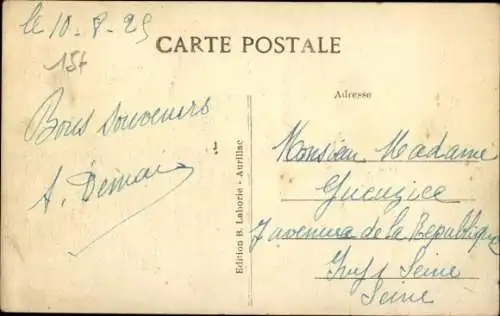 le 10-8-25
15f
CARTE POSTALE
Adresse
Bons souvenirs
A.
Edition B. Laborie - Aurillac
Monsieur Madame
7 avenue de la République
Ivry s/ Seine
Seine